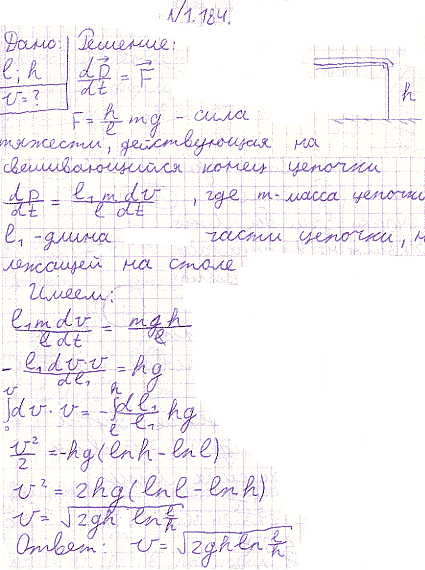 N1.184.
Дано: Решение:
l; h dp⃗/dt = F⃗
v = ?
h
F = h/l mg - сила
тяжести, действующая на
свешивающийся конец цепочки
dp/dt = l₁ m dv / l dt , где m - масса цепочки
l₁ - длина части цепочки, н
лежащей на столе
Имеем:
l₁ m dv / l dt = mgh / l
- l₁ dv · v / dl₁ = hg
∫₀^v dv · v = - ∫_l^h dl₁/l₁ hg
v²/2 = -hg (ln h - ln l)
v² = 2hg (ln l - ln h)
v = √(2gh ln l/h)
Ответ: v = √(2gh ln l/h)